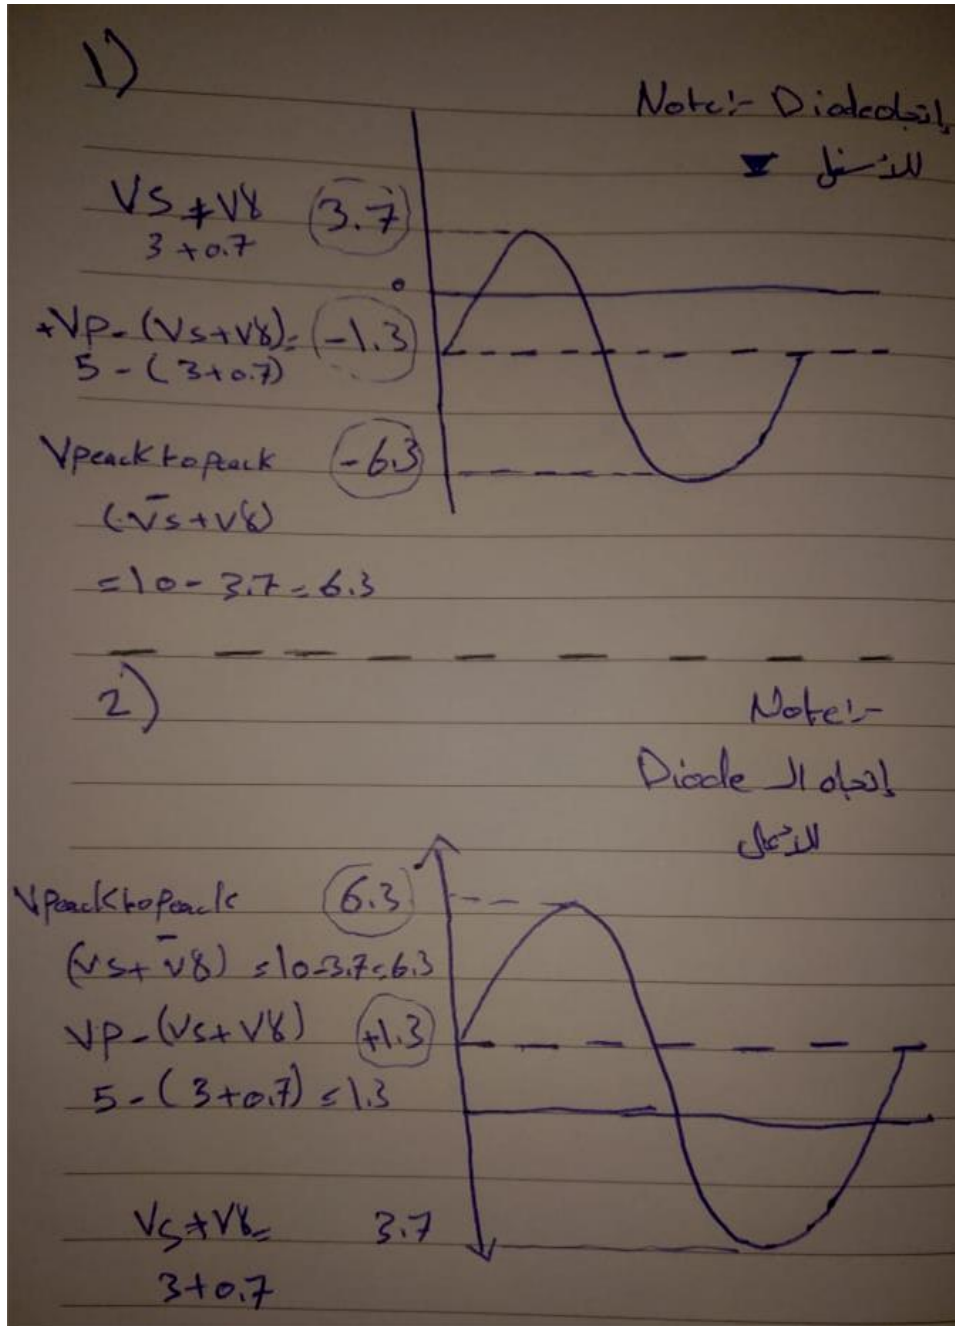 1)
Note:- Diode إتجاه
للأسفل
Vs + Vγ 3.7
3 + 0.7
0
+Vp - (Vs + Vγ) = -1.3
5 - (3 + 0.7)
Vpeack to peack -6.3
(-Vs + Vγ)
= 10 - 3.7 = 6.3
2)
Note:-
إتجاه ال Diode
للأعلى
Vpeack to peack 6.3
(Vs + -Vγ) = 10 - 3.7 = 6.3
Vp - (Vs + Vγ) +1.3
5 - (3 + 0.7) = 1.3
Vs + Vγ = 3.7
3 + 0.7